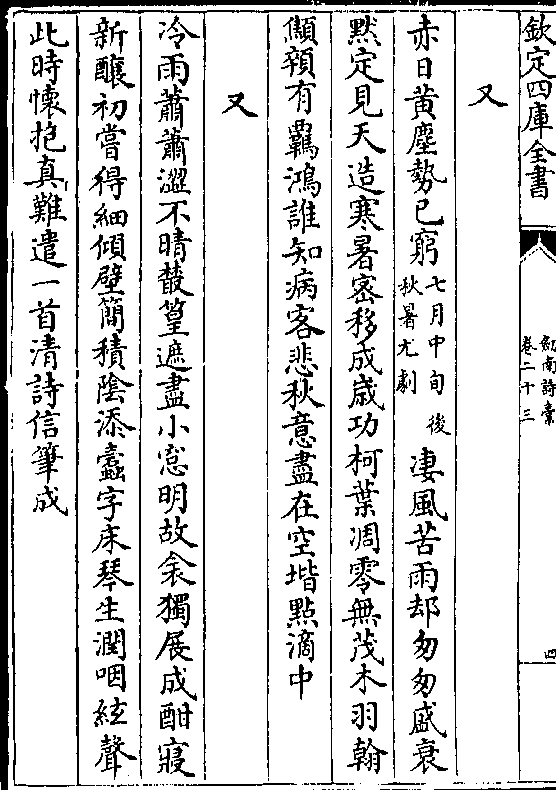 欽定四庫全書
劔南詩藁
卷二十三
四
又
赤日黄塵勢已窮七月中旬後秋暑尤劇凄風苦雨却匆匆盛衰
黙定見天造寒暑密移成歳功柯葉凋零無茂木羽翰
顦顇有羈鴻誰知病客悲秋意盡在空堦點滴中
又
冷雨蕭蕭澀不晴叢篁遮盡小窓明故衾獨展成酣寢
新釀初嘗得細傾壁簡積陰添蠧字床琴生潤咽絃聲
此時懷抱真難遣一首清詩信筆成